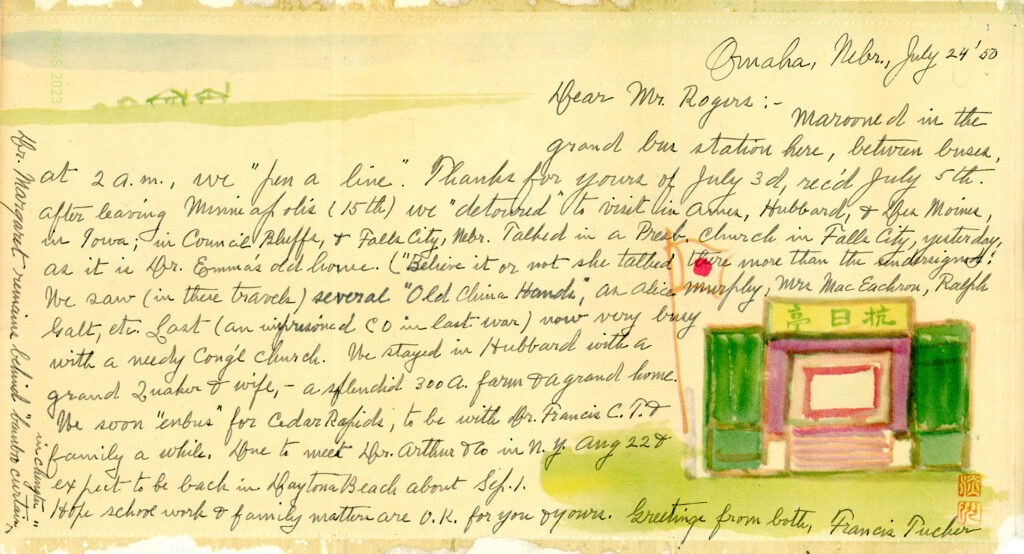 Omaha, Nebr., July 24 '50
Dear Mr. Rogers :- Marooned in the
grand bus station here, between buses,
at 2 a.m., we "pen a line". Thanks for yours of July 3d, rec'd July 5th.
After leaving Minneapolis (15th) we "detoured" to visit in Ames, Hubbard, & Des Moines,
in Iowa; in Council Bluffs, & Falls City, Nebr. Talked in a Presb. Church in Falls City, yesterday,
as it is Dr. Emma's old home. ("Believe it or not she talked there more than the undersigned".
We saw (in these travels) several "Old China Hands", as Alice Murphy, Mrs MacEachron, Ralph
Galt, etc. Last (an imprisoned CO in last war) now very busy
with a needy Cong'l church. We stayed in Hubbard with a
grand Quaker & wife, - a splendid 300 A. farm & a grand home.
We soon "enbus" for Cedar Rapids, to be with Dr. Francis C. T. &
family a while. Due to meet Dr. Arthur & Co in N. Y. Aug 22 &
expect to be back in Daytona Beach about Sep. 1.
Hope school work & family matters are O.K. for you & yours. Greetings from both, Francis Tucker
Dr. Margaret remains behind "bamboo curtain",
in Chengtu
亭日抗
PHSS 2023